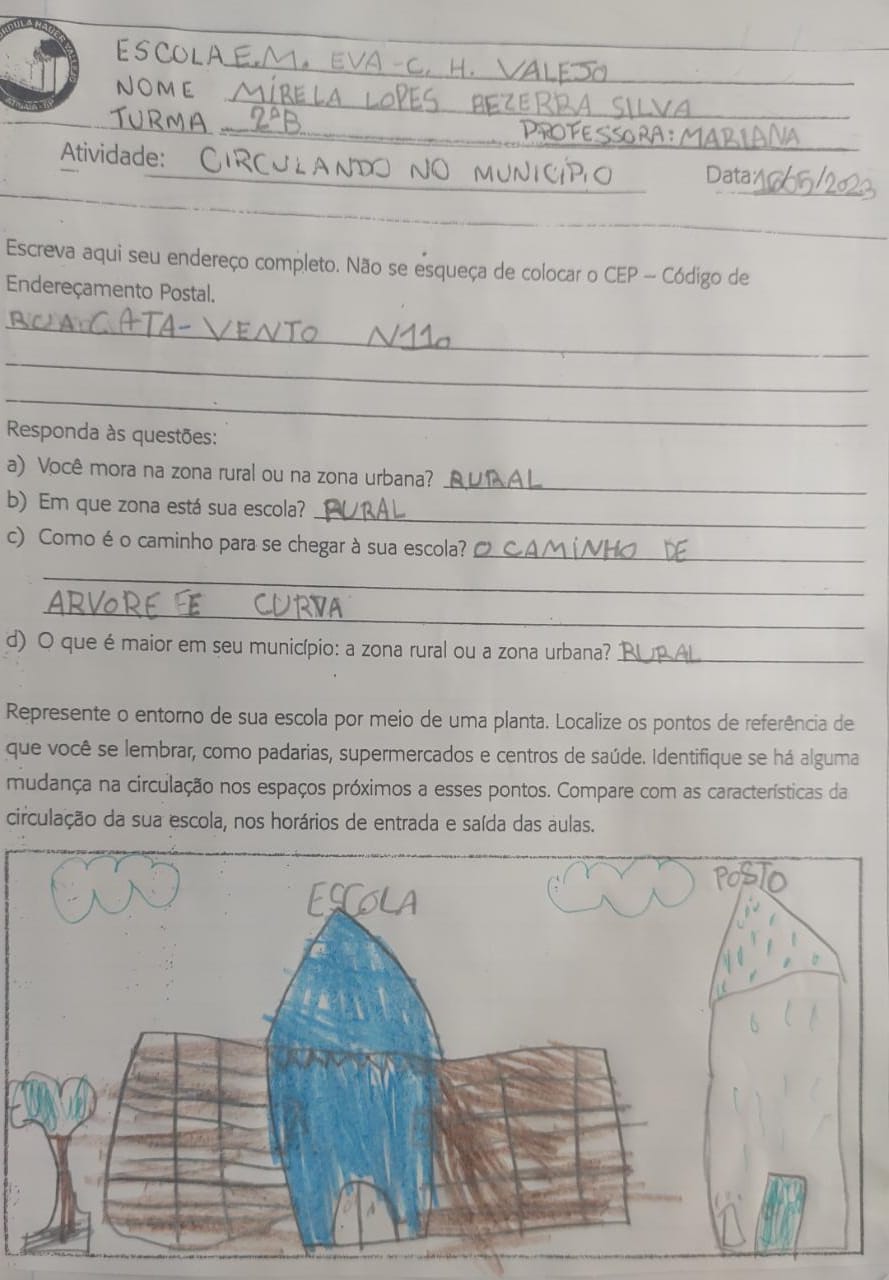 ESCOLA E.M. EVA C. H. VALEJO
NOME MIRELA LOPES BEZERRA SILVA
TURMA 2ªB PROFESSORA: MARIANA
Atividade: CIRCULANDO NO MUNICÍPIO Data: 16/05/2023
Escreva aqui seu endereço completo. Não se esqueça de colocar o CEP – Código de
Endereçamento Postal.
RUA: CATA-VENTO N110
Responda às questões:
a) Você mora na zona rural ou na zona urbana? RURAL
b) Em que zona está sua escola? RURAL
c) Como é o caminho para se chegar à sua escola? O CAMINHO DE
ARVORE E CURVA
d) O que é maior em seu município: a zona rural ou a zona urbana? RURAL
Represente o entorno de sua escola por meio de uma planta. Localize os pontos de referência de
que você se lembrar, como padarias, supermercados e centros de saúde. Identifique se há alguma
mudança na circulação nos espaços próximos a esses pontos. Compare com as características da
circulação da sua escola, nos horários de entrada e saída das aulas.
ESCOLA
POSTO